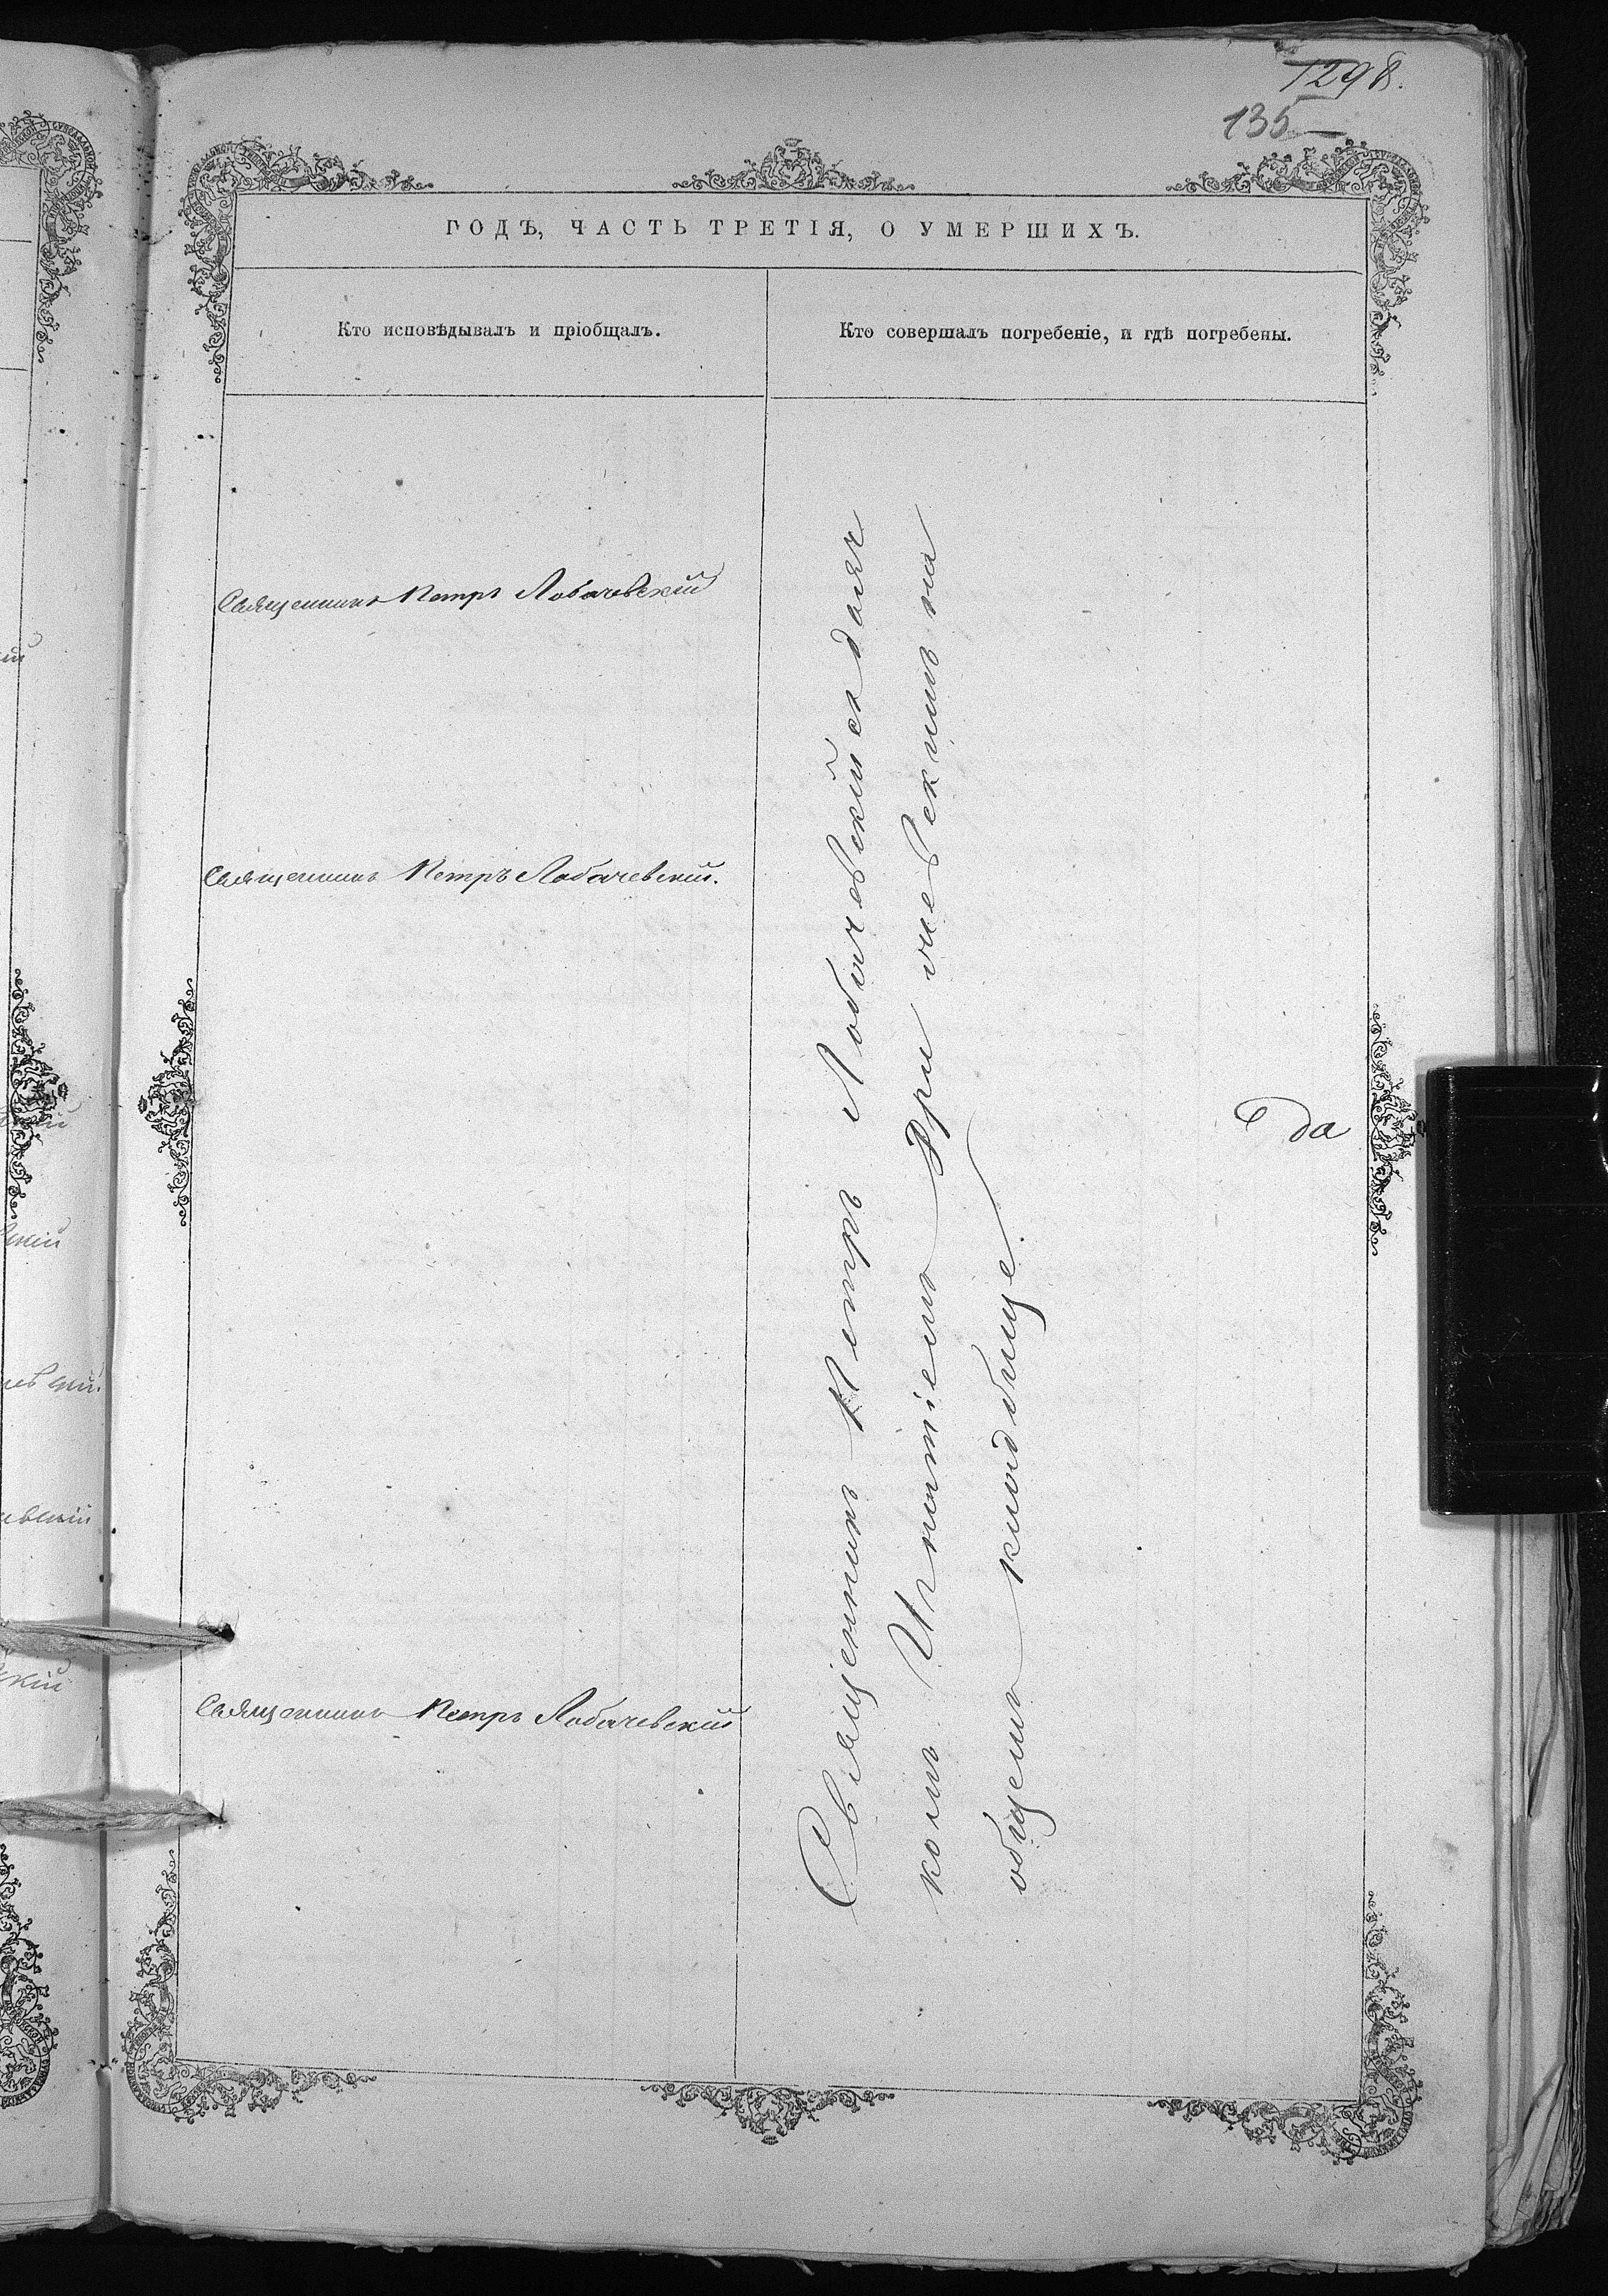 1298.
135
ГОДѢ, ЧАСТЬ ТРЕТІЯ, О УМЕРШИХЪ.
Кто исповѣдывалъ и пріобщалъ.
Кто совершалъ погребеніе, и гдѣ погребены.
Священникъ Петръ Лобачевскій
Священникъ Петръ Лобачевскій.
Священникъ Петръ Лобачевскій
Священникъ Петръ Лобачевскій съ дьяч
комъ Игнатіемъ на
общемъ кладбище.
да